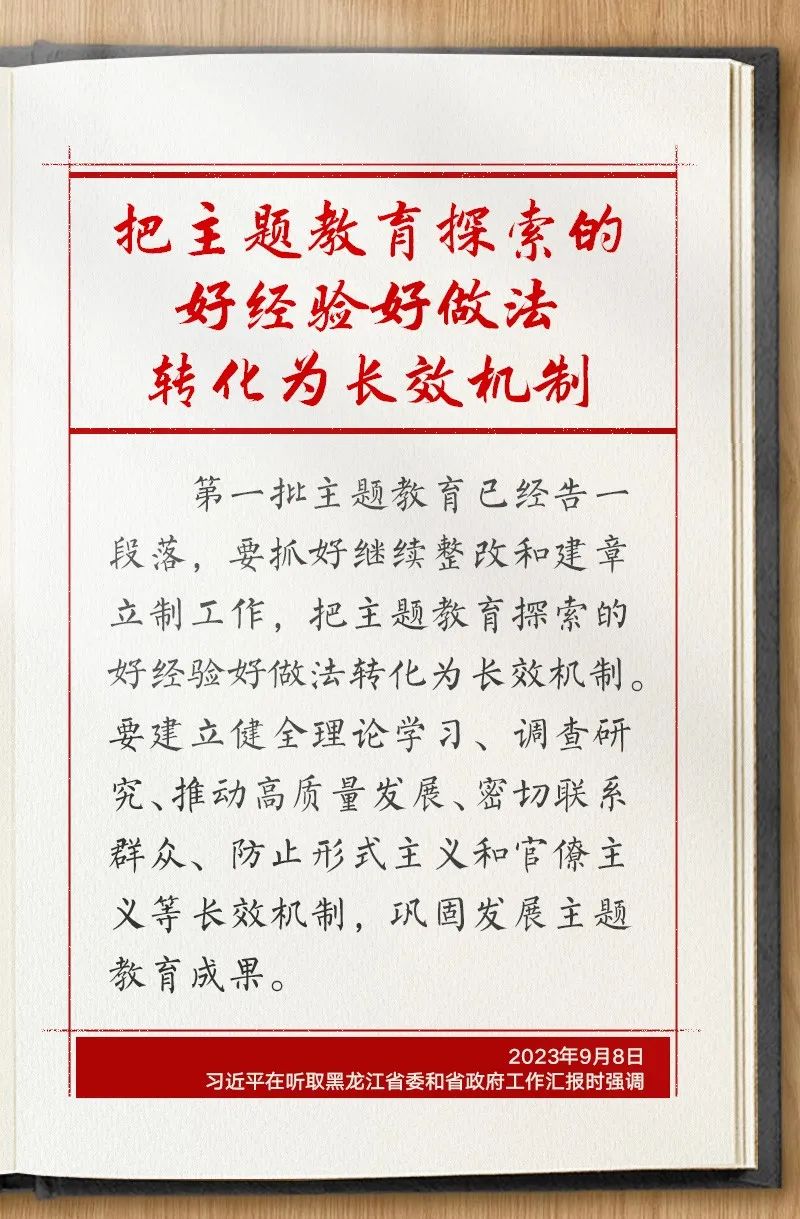 把主题教育探索的
好经验好做法
转化为长效机制
第一批主题教育已经告一
段落，要抓好继续整改和建章
立制工作，把主题教育探索的
好经验好做法转化为长效机制。
要建立健全理论学习、调查研
究、推动高质量发展、密切联系
群众、防止形式主义和官僚主
义等长效机制，巩固发展主题
教育成果。
2023年9月8日
习近平在听取黑龙江省委和省政府工作汇报时强调